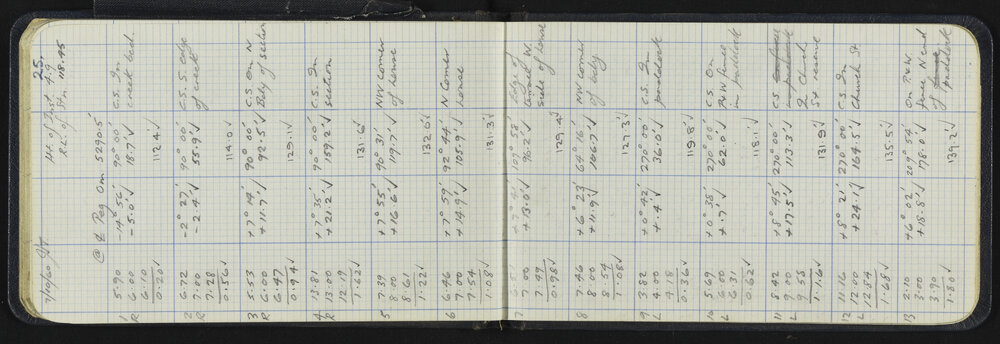 7/10/60 Ht. of Inst 4.9 25.
@ Peg Om 5290.5 R.L. of Stn. 118.45
1 5.90 -14° 56' 90° 00' C.S. In
R 6.00 -5.0'√ 18.7'√ creek bed
6.10
0.20√ 112.4'√
2 6.72 -2° 27' 90° 00' C.S. S. edge
R 7.00 -2.4'√ 55.9'√ of creek
7.28
0.56√ 114.0√
3 5.53 +7° 14' 90° 00' C.S. On N
R 6.00 +11.7'√ 92.5'√ Bdy of section
6.47
0.94√ 129.1√
4 13.81 +7° 35' 90° 00' C.S. In
R 13.00 +21.2'√ 159.2'√ section
12.19
1.62√ 131.6√
5 7.39 +7° 55' 90° 31' NW corner
8.00 +16.6'√ 119.7'√ of house
8.61
1.22√ 132.0√
6 6.46 +7° 59' 92° 44' N Corner
7.00 +14.9'√ 105.9'√ house
7.54
1.08√ 131.3√
7 6.51 107° 58' Edge of W.
7.00 +13.0'√ 96.2'√ side of house
7.49
0.98√ 129.4√
8 7.46 +6° 23' 64° 16' NW corner
8.00 +11.9'√ 106.7'√ of bdy
8.54
1.08√ 127.3√
9 3.82 +0° 42' 270° 00' C.S. In
L 4.00 +.4'√ 36.0'√ paddock
4.18
0.36√ 119.8√
10 5.69 +0° 38' 270° 00' CS On
L 6.00 +.7'√ 62.0'√ P&W fence
6.31 in paddock
0.62√ 118.1√
11 8.42 +8° 45' 270° 00' CS
L 9.00 +17.5'√ 113.3'√ In Church
9.58 St reserve
1.16√ 131.9√
12 11.16 +8° 21' 270° 00' C.S. In
L 12.00 +24.1'√ 164.5'√ Church St
12.84
1.68√ 135.5√
13 2.10 +6° 02' 209° 54' On P&W
3.00 +18.8'√ 178.0'√ fence N end
3.90 of paddock
1.80√ 139.2√